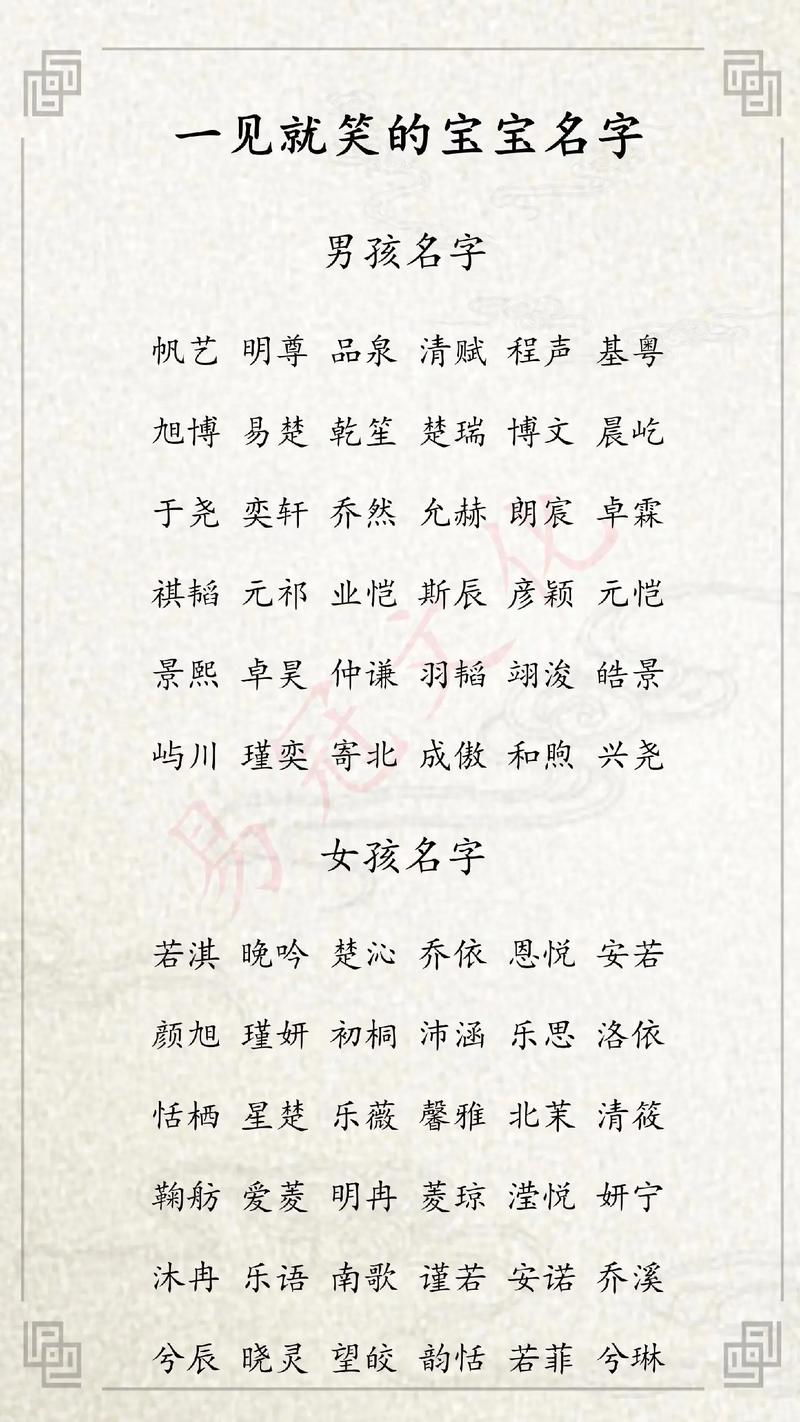 一见就笑的宝宝名字
男孩名字
帆艺 明尊 品泉 清赋 程声 基粤
旭博 易楚 乾笙 楚瑞 博文 晨屹
于尧 奕轩 乔然 允赫 朗宸 卓霖
祺韬 元祁 业恺 斯辰 彦颖 元恺
景熙 卓昊 仲谦 羽韬 翊浚 皓景
屿川 瑾奕 寄北 成傲 和煦 兴尧
易冠文化
女孩名字
若淇 晚吟 楚沁 乔依 恩悦 安若
颜旭 瑾妍 初桐 沛涵 乐思 洛依
恬栖 星楚 乐薇 馨雅 北茉 清筱
鞠舫 爱菱 明冉 菱琼 滢悦 妍宁
沐冉 乐语 南歌 谨若 安诺 乔溪
兮辰 晓灵 望皎 韵恬 若菲 兮琳